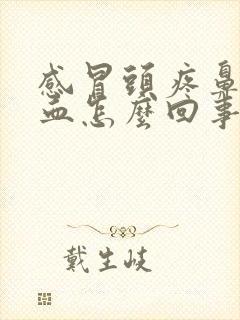 感冒頭疼鼻
血怎麼回事
戴生岐